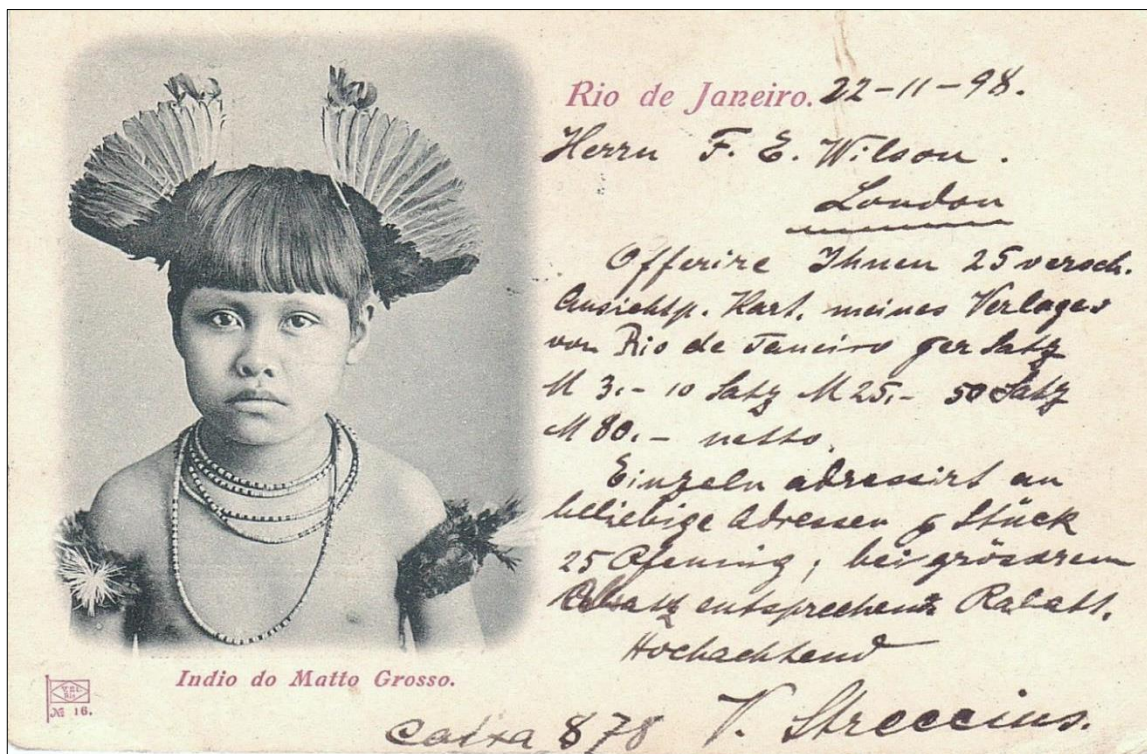 Rio de Janeiro. 22-11-98.
Herrn F. E. Wilson.
London
Offerire Ihnen 25 versch.
Ansichtsp. Kart. meines Verlages
von Rio de Janeiro per Satz
M 3.- 10 Satz M 25.- 50 Satz
M 80.- netto.
Einzeln adressirt an
beliebige Adressen p Stück
25 Pfennig; bei grösserem
Absatz entsprechend Rabatt.
Hochachtend
V. Streccius.
Caixa 878
Indio do Matto Grosso.
№ 16.